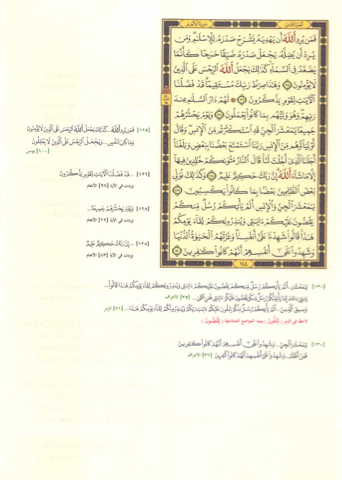 فَمَن يُرِدِ ٱللَّهُ أَن يَهْدِيَهُۥ يَشْرَحْ صَدْرَهُۥ لِلْإِسْلَٰمِ وَمَن
يُرِدْ أَن يُضِلَّهُۥ يَجْعَلْ صَدْرَهُۥ ضَيِّقًا حَرَجًا كَأَنَّمَا
يَصَّعَّدُ فِى ٱلسَّمَآءِ كَذَٰلِكَ يَجْعَلُ ٱللَّهُ ٱلرِّجْسَ عَلَى ٱلَّذِينَ
لَا يُؤْمِنُونَ ۝١٢٥ وَهَٰذَا صِرَٰطُ رَبِّكَ مُسْتَقِيمًا قَدْ فَصَّلْنَا
ٱلْءَايَٰتِ لِقَوْمٍ يَذَّكَّرُونَ ۝١٢٦ لَهُمْ دَارُ ٱلسَّلَٰمِ عِندَ
رَبِّهِمْ وَهُوَ وَلِيُّهُم بِمَا كَانُوا۟ يَعْمَلُونَ ۝١٢٧ وَيَوْمَ يَحْشُرُهُمْ
جَمِيعًا يَٰمَعْشَرَ ٱلْجِنِّ قَدِ ٱسْتَكْثَرْتُم مِّنَ ٱلْإِنسِ وَقَالَ
أَوْلِيَآؤُهُم مِّنَ ٱلْإِنسِ رَبَّنَا ٱسْتَمْتَعَ بَعْضُنَا بِبَعْضٍ وَبَلَغْنَآ
أَجَلَنَا ٱلَّذِىٓ أَجَّلْتَ لَنَا قَالَ ٱلنَّارُ مَثْوَىٰكُمْ خَٰلِدِينَ فِيهَآ
إِلَّا مَا شَآءَ ٱللَّهُ إِنَّ رَبَّكَ حَكِيمٌ عَلِيمٌ ۝١٢٨ وَكَذَٰلِكَ نُوَلِّى
بَعْضَ ٱلظَّٰلِمِينَ بَعْضًۢا بِمَا كَانُوا۟ يَكْسِبُونَ ۝١٢٩
يَٰمَعْشَرَ ٱلْجِنِّ وَٱلْإِنسِ أَلَمْ يَأْتِكُمْ رُسُلٌ مِّنكُمْ
يَقُصُّونَ عَلَيْكُمْ ءَايَٰتِى وَيُنذِرُونَكُمْ لِقَآءَ يَوْمِكُمْ
هَٰذَا قَالُوا۟ شَهِدْنَا عَلَىٰٓ أَنفُسِنَا وَغَرَّتْهُمُ ٱلْحَيَوٰةُ ٱلدُّنْيَا
وَشَهِدُوا۟ عَلَىٰٓ أَنفُسِهِمْ أَنَّهُمْ كَانُوا۟ كَٰفِرِينَ ۝١٣٠
١٤٤
[١٢٥] فَمَن يُرِدِ ٱللَّهُ ...كَذَٰلِكَ يَجْعَلُ ٱللَّهُ ٱلرِّجْسَ عَلَى ٱلَّذِينَ لَا يُؤْمِنُونَ
وَمَا كَانَ لِنَفْسٍ ...وَيَجْعَلُ ٱلرِّجْسَ عَلَى ٱلَّذِينَ لَا يَعْقِلُونَ
[١٠٠] يونس
[١٢٦] ...قَدْ فَصَّلْنَا ٱلْءَايَٰتِ لِقَوْمٍ يَذَّكَّرُونَ
[١٢٨] وَيَوْمَ يَحْشُرُهُمْ جَمِيعًا...
[١٢٨] ...إِنَّ رَبَّكَ حَكِيمٌ عَلِيمٌ
وردت في الآية [٨٣] الأنعام
[١٣٠] يَٰمَعْشَرَ ... أَلَمْ يَأْتِكُمْ رُسُلٌ مِّنكُمْ يَقُصُّونَ عَلَيْكُمْ ءَايَٰتِى وَيُنذِرُونَكُمْ لِقَآءَ يَوْمِكُمْ هَٰذَا قَالُوا۟...
يَٰبَنِىٓ ءَادَمَ إِمَّا يَأْتِيَنَّكُمْ رُسُلٌ مِّنكُمْ يَقُصُّونَ عَلَيْكُمْ ءَايَٰتِى فَمَنِ ٱتَّقَىٰ... [٣٥] الأعراف
وَسِيقَ ٱلَّذِينَ ...أَلَمْ يَأْتِكُمْ رُسُلٌ مِّنكُمْ يَتْلُونَ عَلَيْكُمْ ءَايَٰتِ رَبِّكُمْ وَيُنذِرُونَكُمْ لِقَآءَ يَوْمِكُمْ هَٰذَا... [٧١] الزمر
[١٣٠] يَٰمَعْشَرَ ٱلْجِنِّ ...وَشَهِدُوا۟ عَلَىٰٓ أَنفُسِهِمْ أَنَّهُمْ كَانُوا۟ كَٰفِرِينَ
...وَشَهِدُوا۟ عَلَىٰٓ أَنفُسِهِمْ أَنَّهُمْ كَانُوا۟ كَٰفِرِينَ [٣٧] الأعراف